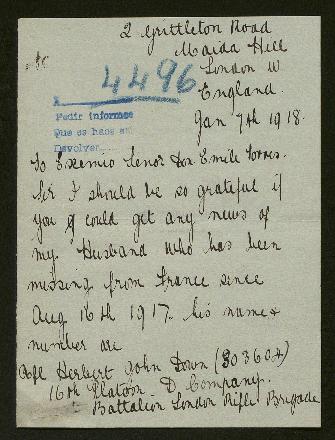 2 Grittleton Road
Maida Hill
London W
England.
4496
Jan 7th 1918.
Pedir informes
Que se haga en
Devolver
To Excmio Senor Don Emile Torres.
Sir I should be so grateful if
you could get any news of
my Husband who has been
missing from France since
Aug 16th 1917. his name &
number are
Rfl Herbert John Down (303604)
16th Platoon D. Company.
Battalion London Rifle Brigade